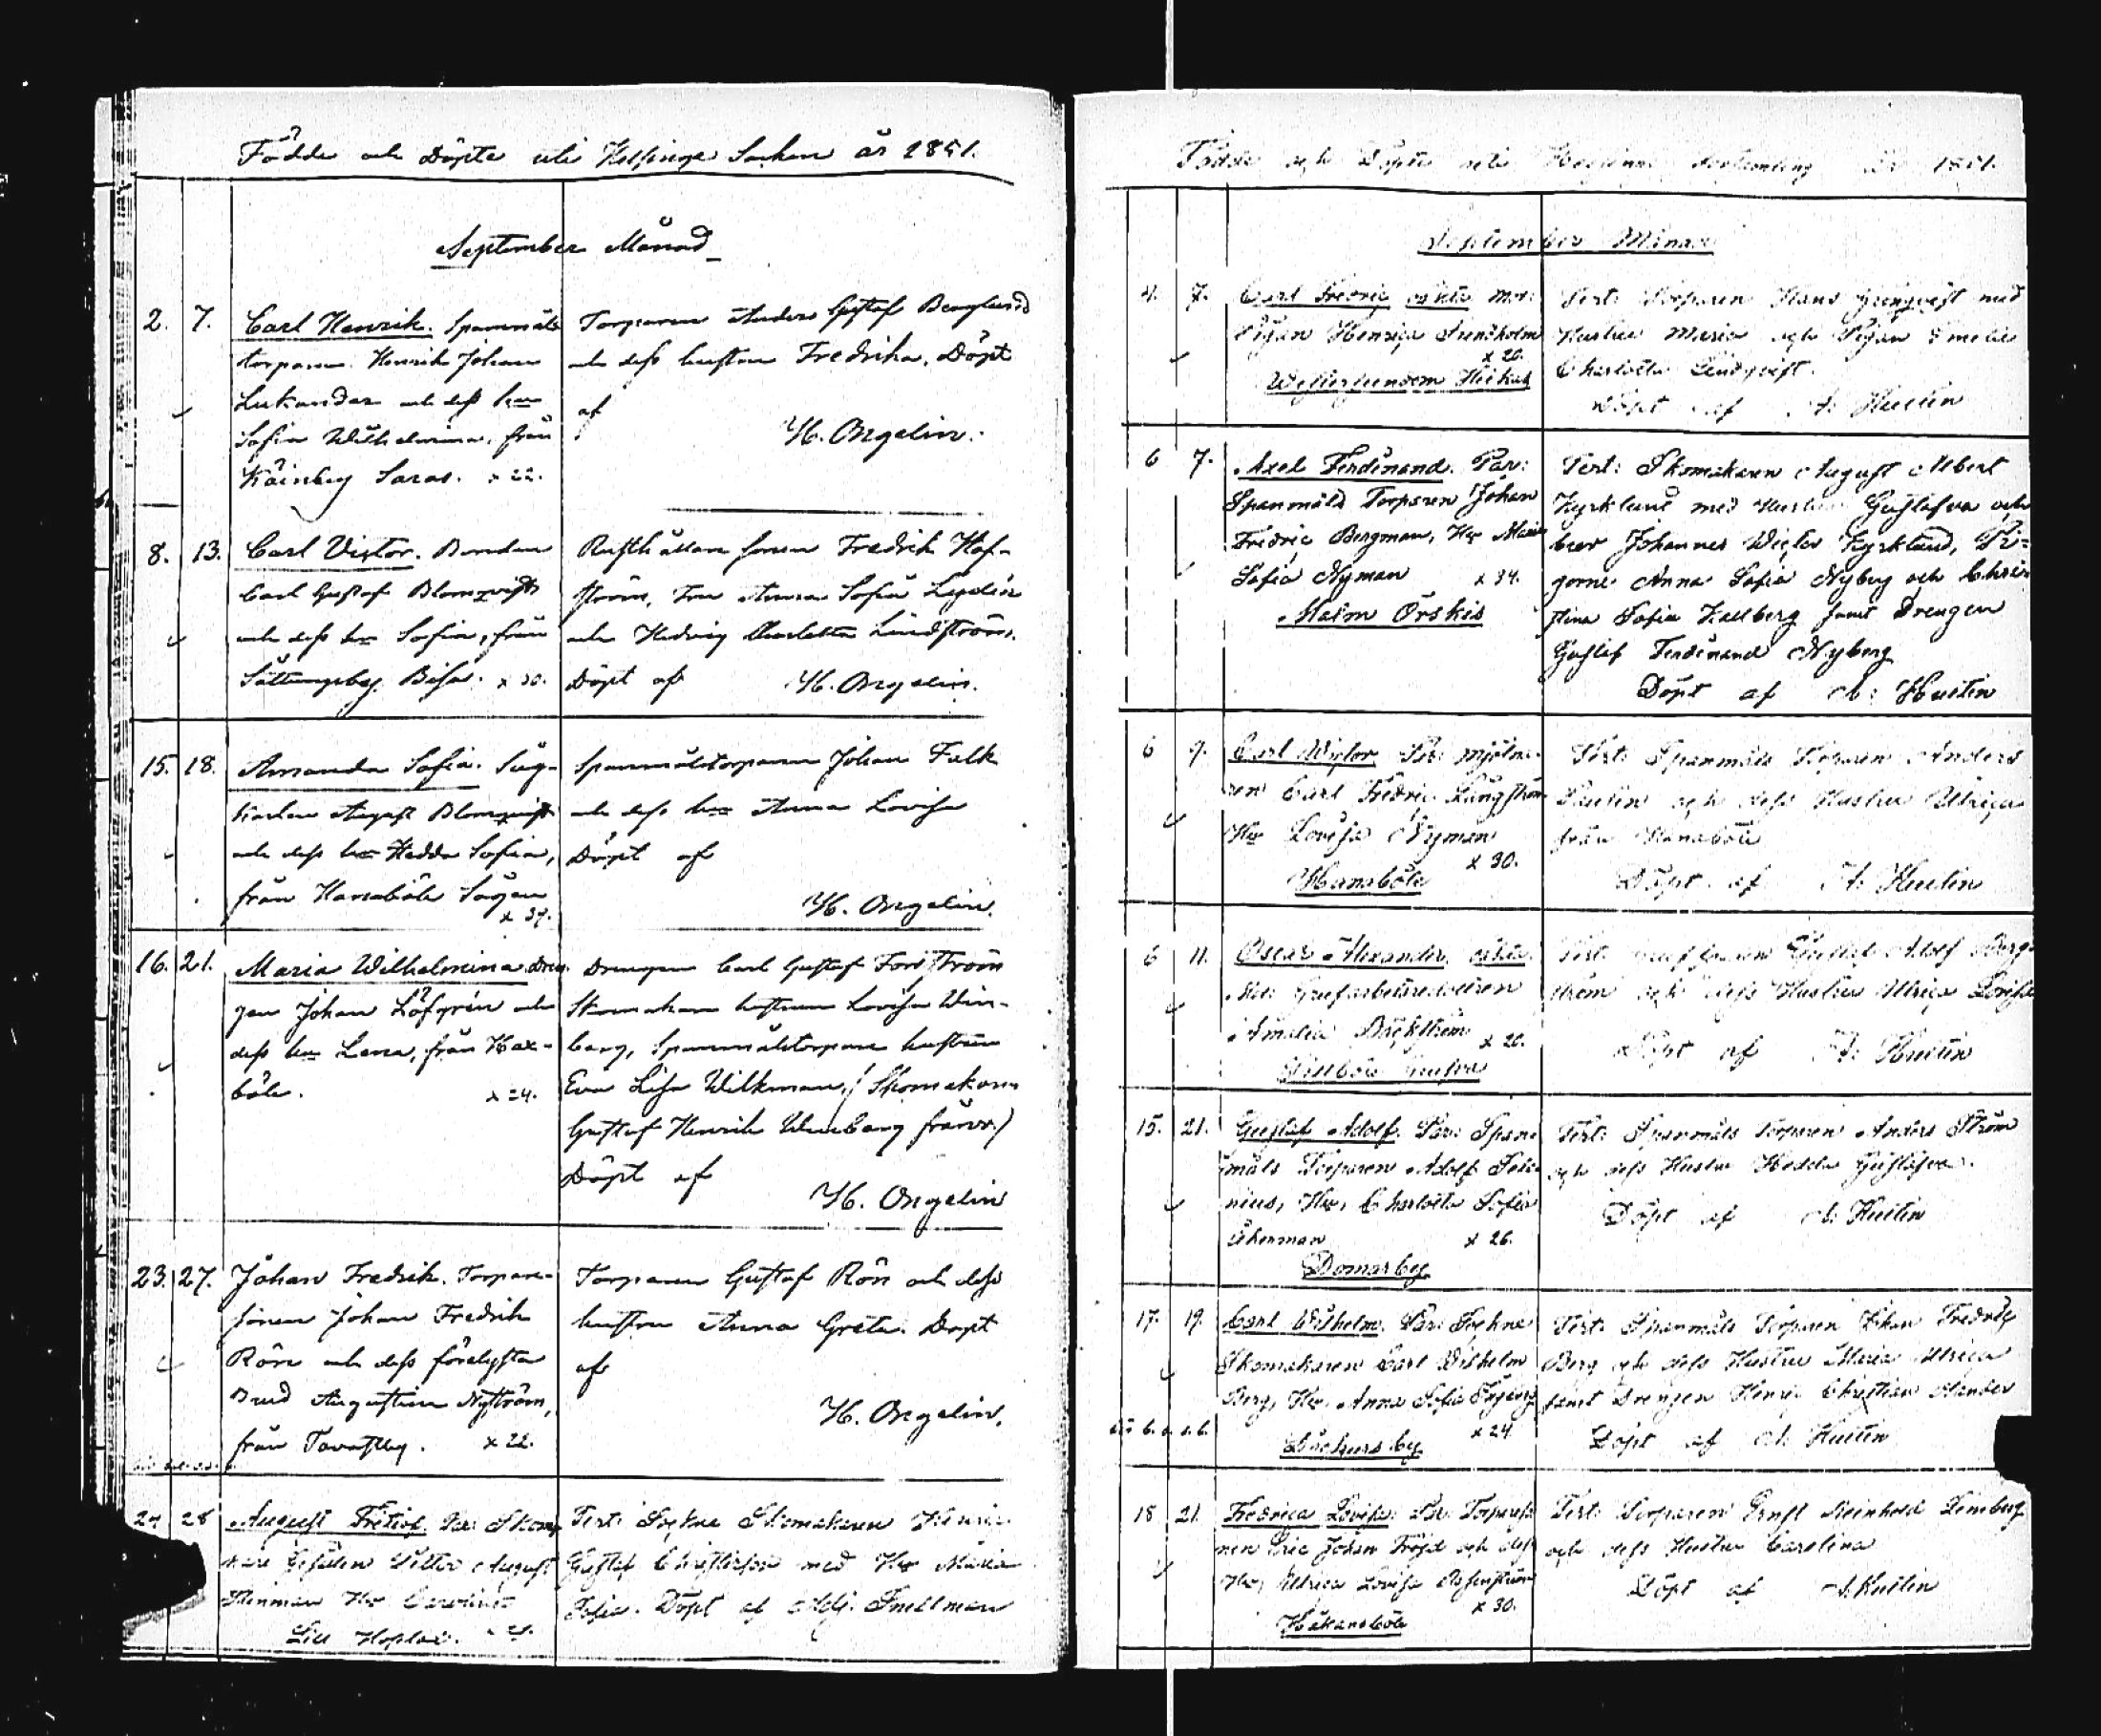 Födde och Döpte uti Helsinge Socken år 1851.
September Månad
2. 7. Carl Henrik. Spannmåls
torparen Henrik Johan
Lukander och dess hu
Sofia Wilhelmina, från
Saras. x 22.
Torparen Anders Gustaf Berglund
och dess hustru Fredrika. Döpt
af
H. Ongelin.
8. 13. Carl Victor. Bonden
Carl Gustaf Blomqvist
och dess hu Sofia, från
x 30.
Rusthållare sonen Fredrik Haf-
ström, Anna Sofia Lydén
och Hedvig Charlotta Lindström.
Döpt af H. Ongelin.
15. 18. Amanda Sofia. Såg-
karlen August Blomqvist
och dess hu Hedda Sofia,
från Hanaböle Sågen
x 37.
Spannmålstorparen Johan Falk
och dess hu Anna Lovisa
Döpt af
H. Ongelin.
16. 21. Maria Wilhelmina Dren-
gen Johan Löfgrén och
dess hu Lena, från Hax-
böle. x 24.
Drengen Carl Gustaf Forsström
Skomakare hustrun Lovisa Win-
berg, Spannmålstorpare hustrun
Eva Lisa Wilkman, (Skomakaren
Gustaf Henrik Winberg frånv.)
Döpt af
H. Ongelin
23. 27. Johan Fredrik. Torpare-
sonen Johan Fredrik
Rön och dess förelysta
Brud Augustina Nyström,
från Tavastby. x 22.
Torparen Gustaf Rön och dess
hustru Anna Greta. Döpt
af
H. Ongelin.
28 August Par: Skom
August
Hu Carolina
Lill Hoplax.
Test: Sockne Skomakaren Henric
Gustaf med Hu Maria
Sofia. Döpt af Adj. Snellman
Födde och Döpte uti Församling År 1851.
September Månad
4. 7. Carl Fredric oäkta Mor:
Pigan Henrica Svenskholm
x 20.
Test: Torparen Hans Ljungqvist med
Hustru Maria och Pigan Emelie
Charlotta Lindqvist.
Döpt af A. Hustin
6 7. Axel Ferdinand. Par:
Spanmåls Torparen Johan
Fredric Bergman, Hu Maria
Sofia Nyman x 34.
Malm Örskis
Test: Skomakaren August Albert
Kyrklund med Hustru Gustafva och
Johannes Victor Kyrklund, Pi-
gorne Anna Sofia Nyberg och Chris
tina Sofia Kallberg samt Drengen
Gustaf Ferdinand Nyberg
Döpt af A. Hustin
6 9. Carl Victor Par: Mjölna-
ren Carl Fredric Långström
Hu Lovisa Nyman
x 30.
Hanaböle
Test: Spanmåls Torparen Anders
och dess Hustru Ulrica
från Hanaböle
Döpt af A. Hustin
6 11. Oscar Alexander, oäkta
Mor: Grufarbetare
Amalia Bäckström x 20.
Test: Gustaf Adolf Berg-
ström och dess Hustru Ulrica Lovisa
Döpt af A. Hustin
15. 21. Gustaf Adolf. Par: Span-
måls Torparen Adolf
Hu, Charlotta Sofia
Åkerman x 26.
Domarby
Test: Spanmåls Torparen Anders Ström
och dess Hustru Hedda Gustafva.
Döpt af A. Hustin
17. 19 Carl Wilhelm. Par: Sockne
Skomakaren Carl Wilhelm
Berg, Hu, Anna Sofia
x 24
Test: Spanmåls Torparen Johan Fredric
Berg och dess Hustru Maria Ulrica
samt Drengen Henric Christian
Döpt af A. Hustin
18 21 Fredrica Lovisa: Par: Torpareso
nen Eric Johan Fröjd och dess
Hu, Ulrica Lovisa
x 30.
Håkansböle
Test: Torparen Ernst Reinhold Limberg
och dess Hustru Carolina
Döpt af A. Hustin